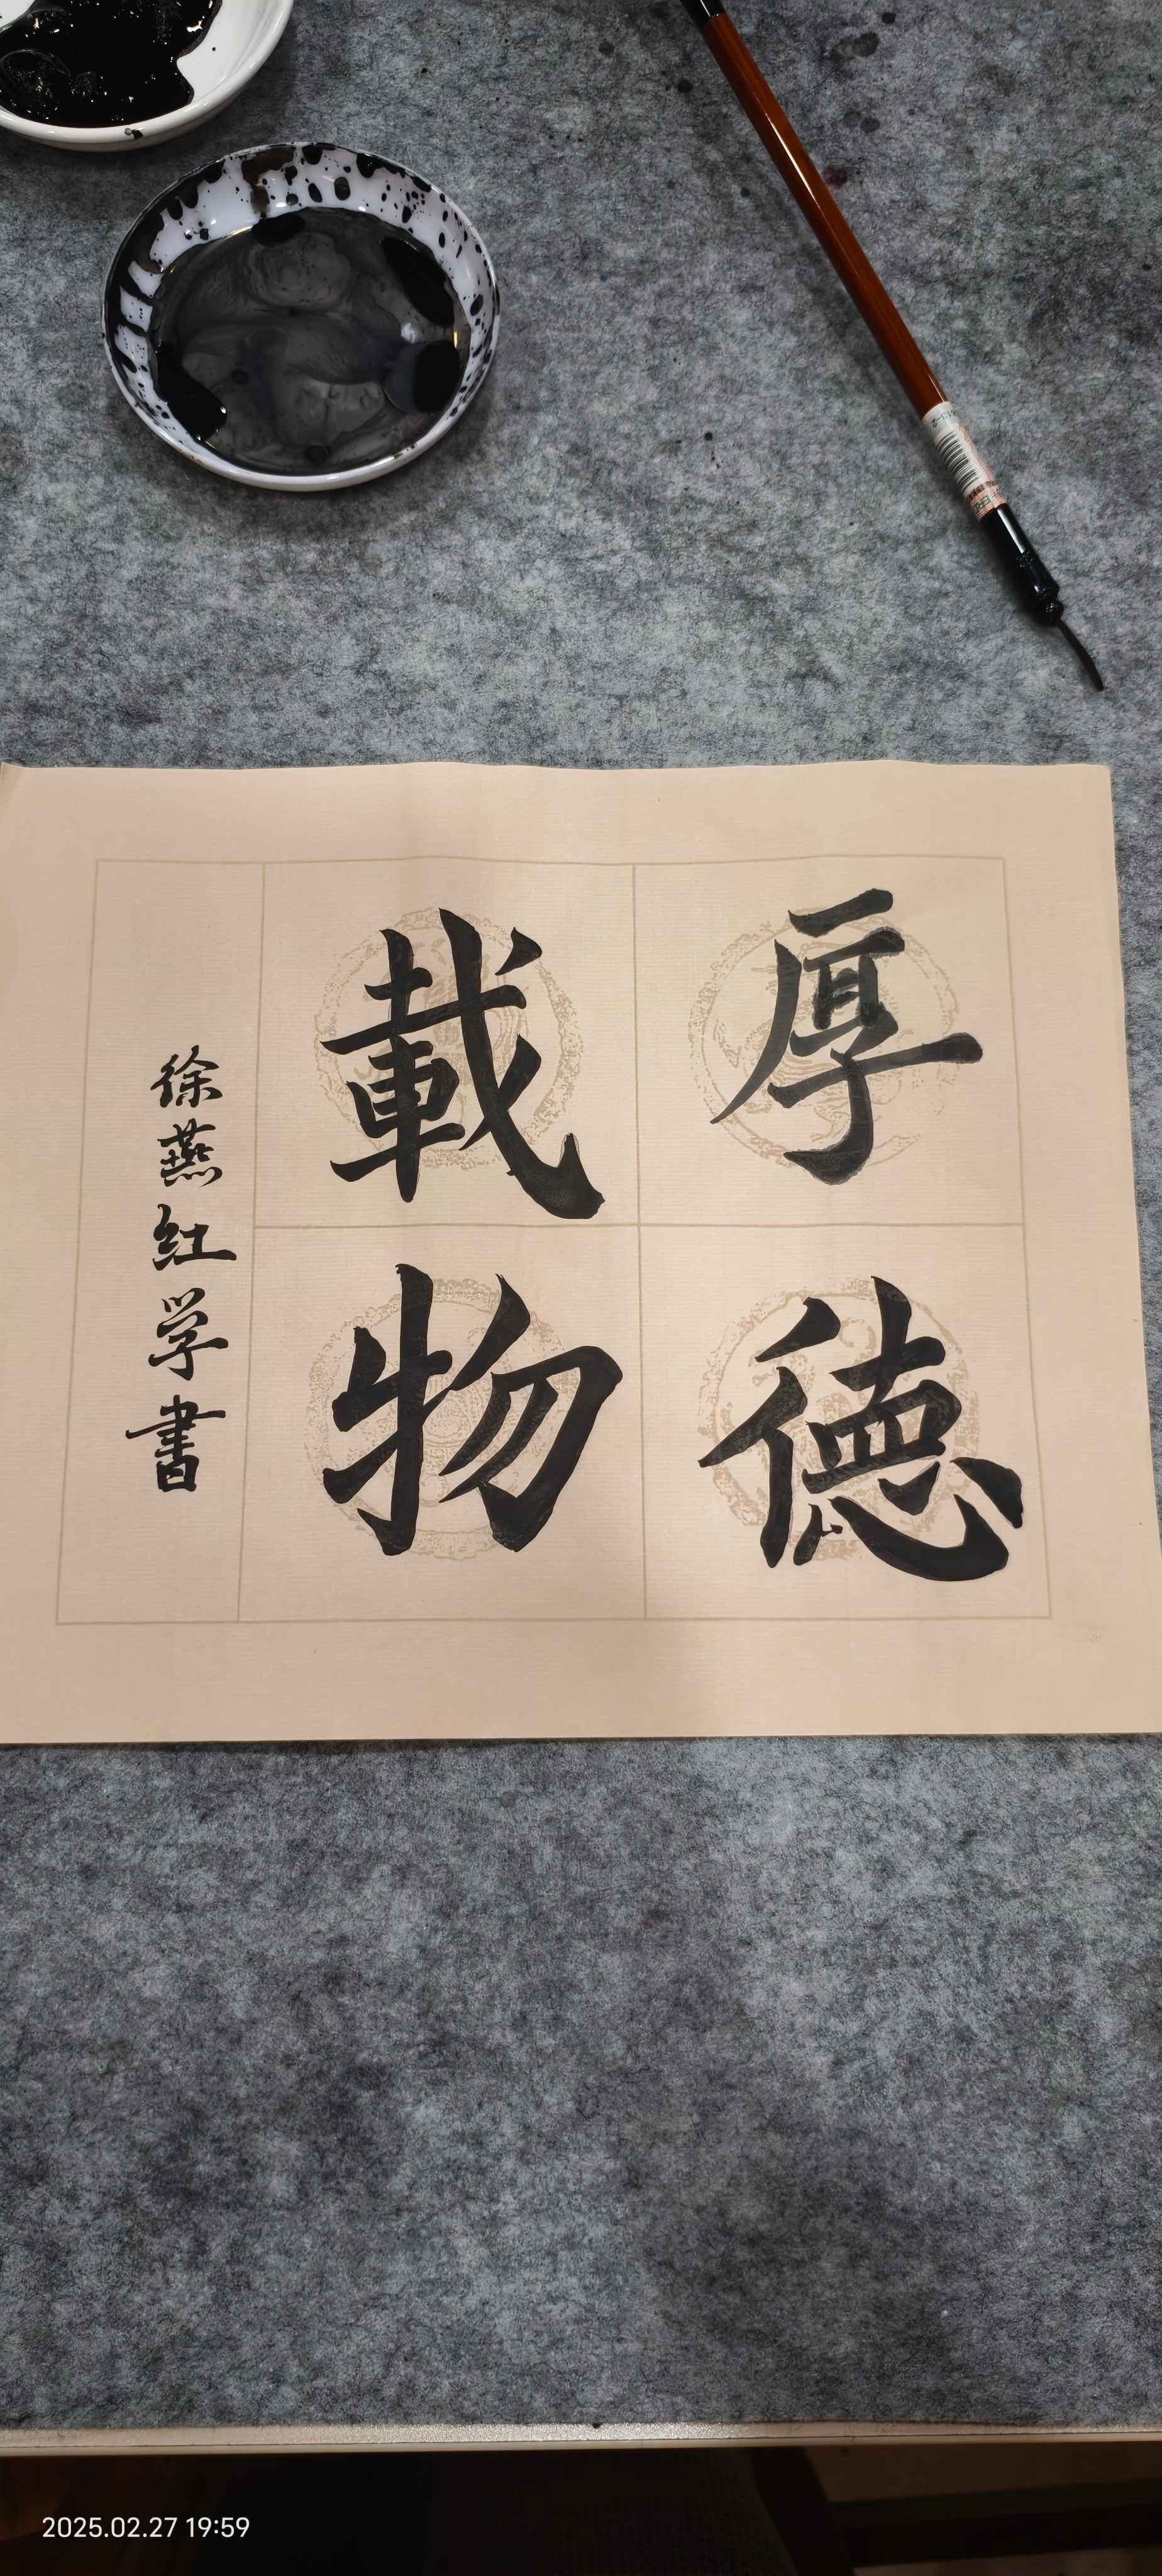 厚德
載物
徐燕红学書
2025.02.27 19:59